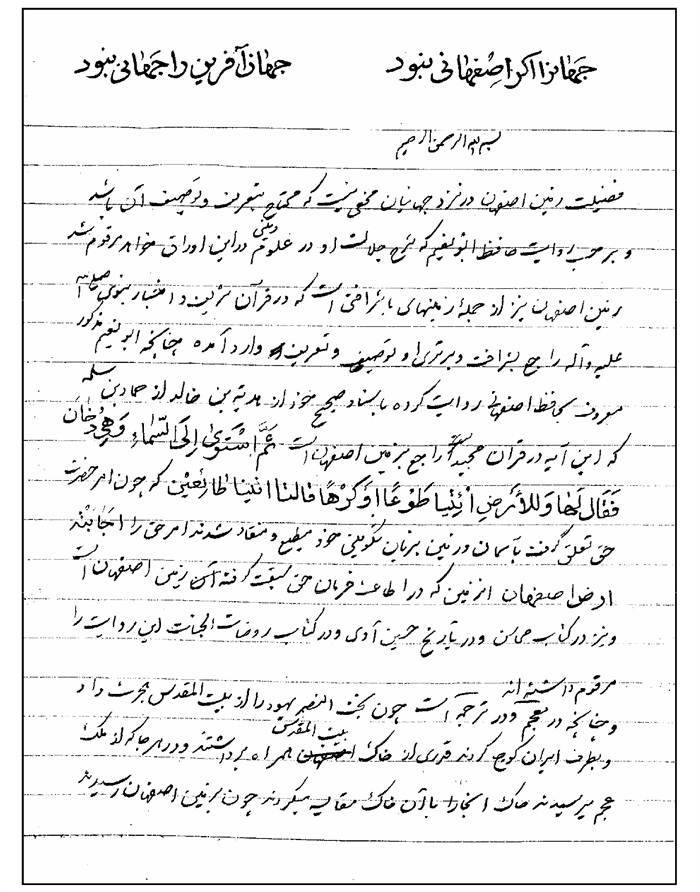 جهانرا اگر اصفهانی نبود جهان آفرین را جهانی نبود
بسم الله الرحمن الرحیم
فضیلت زمین اصفهان در نزد جهانیان مخفی نیست که محتاج بتعریف و توصیف آن باشد
و بر حسب روایت حافظ ابو نعیم که شرح جلالت او در علوم دینی در این اوراق خواهد مرقوم شد
زمین اصفهان نیز از جملهٔ زمینهای با شرافتی است که در قرآن مبین و اخبار نبوی صلی الله
علیه و آله راجع بشرافت و برتری او توصیف و تعریف وارد آمده چنانچه ابو نعیم مذکور
معروف بحافظ اصفهانی روایت کرده باسناد صحیح خود از هدبة بن خالد از حماد بن سلمه
که این آیه در قرآن مجید راجع بزمین اصفهان است ثم استوی الی السماء و هی دخان
فقال لها و للأرض ائتیا طوعا او کرها قالتا اتینا طائعین که چون امر حضرت
حق تعلق گرفت بآسمان و زمین بزبان تکوینی خود مطیع و منقاد شدند امر حق را اجابته
ارض اصفهان از زمین که در اطاعت فرمان حق سبقت گرفته آن زمین اصفهان است
و نیز در کتاب محاسن و در تاریخ حسین آوی و در کتاب روضات الجنات این روایت را
مرقوم داشته‌اند
و چنانچه در معجم و در ترجمه است چون بخت النصر یهود را از بیت المقدس هجرت داد
و بطرف ایران کوچ کردند قدری از خاک بیت المقدس همراه برداشتند و در هر جا که از ملک
عجم میرسیدند خاک آنجا را با آن خاک مقایسه میکردند چون بزمین اصفهان رسیدند